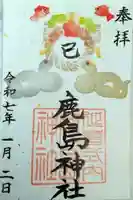 奉拝
巳
鹿島神社
令和七年一月二日